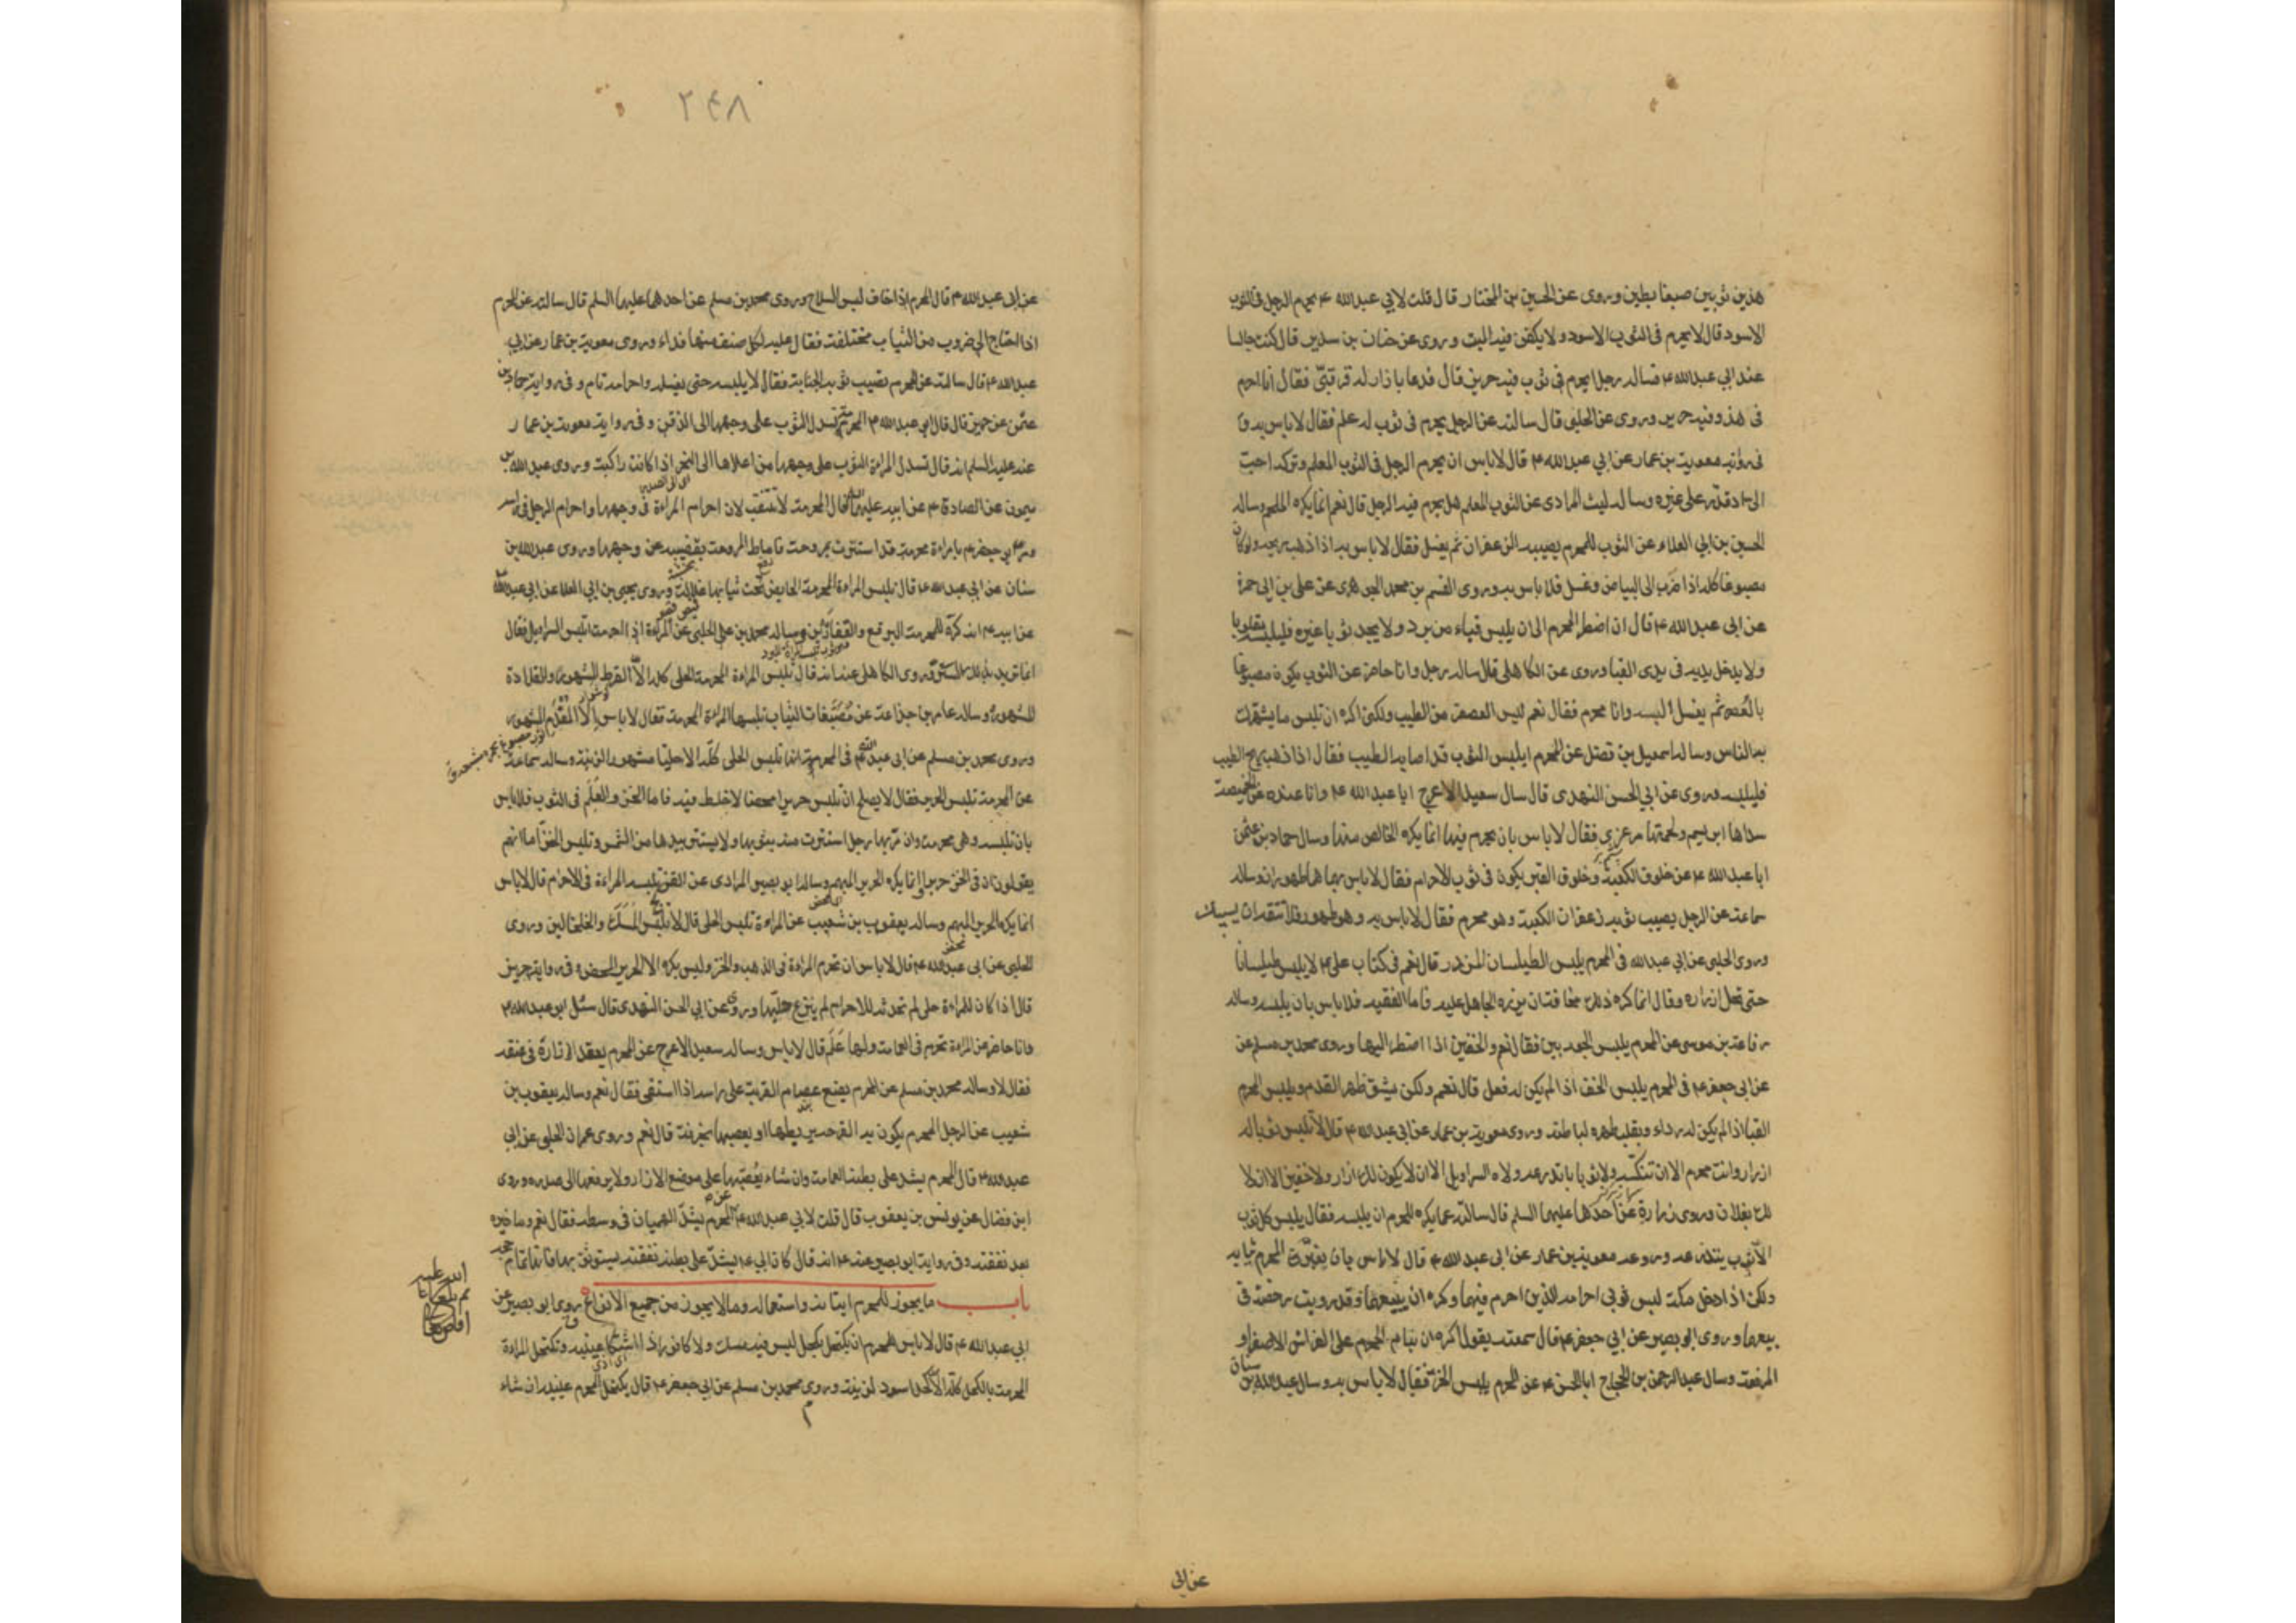 هذين ثوبين صبغا بطين وروى عن الحسين بن المختار قال قلت لابي عبدالله ۴ يحرم الرجل فى الثوب
الاسود قال لا يحرم فى الثوب الاسود ولا يكفن فيه الميت وروى عن حنان بن سدير قال كنت جالسا
عند ابي عبدالله ۴ فساله رجل ايحرم فى ثوب فيه حرير قال فدعا بازار له قرقبىّ فقال انا احرم
فى هذا وفيه حرير وروى عن الحلبى قال سالته عن الرجل يحرم فى ثوب له علم فقال لا باس به و
فى رواية معوية بن عمار عن ابي عبدالله ۴ قال لا باس ان يحرم الرجل فى الثوب المعلم وتركه احبّ
الىّ اذا قدر على غيره وساله ليث المرادى عن الثوب المعلم هل يحرم فيه الرجل قال نعم انما يكره الملحم وساله
الحسين بن ابي العلاء عن الثوب للمحرم يصيبه الزعفران ثم يغسل فقال لا باس به اذا ذهب ريحه ولو كان
مصبوغا كله اذا ضرب الى البياض وغسل فلا باس به وروى القسم بن محمد الجوهرى عن على بن ابى حمزة
عن ابى عبدالله ۴ قال ان اضطر المحرم الى ان يلبس قباء من برد ولا يجد ثوبا غيره فليلبسه مقلوبا
ولا يدخل يديه فى يدى القبا وروى عن الكاهلى قال ساله رجل وانا حاضر عن الثوب يكون مصبوغا
بالعصفر ثم يغسل البسه وانا محرم فقال نعم ليس العصفر من الطيب ولكنى اكره ان تلبس ما يشهرك
به الناس وساله اسمعيل بن الفضل عن المحرم ايلبس الثوب قد اصابه الطيب فقال اذا ذهب ريح الطيب
فليلبسه وروى عن ابي الحسن النهدى قال سال سعيد الاعرج ابا عبدالله ۴ وانا عنده عن الخميصة
سداها ابريسم ولحمتها مرعزى فقال لا باس بان يحرم فيها انما يكره الخالص منها وسال حماد بن عثمن
ابا عبدالله ۴ عن خلوق الكعبة وخلوق القبر يكون فى ثوب الاحرام فقال لا باس بهما هما طهوران وساله
سماعة عن الرجل يصيب ثوبه زعفران الكعبة وهو محرم فقال لا باس به وهو طهور فلا تتقه ان يصيبك
وروى الحلبى عن ابي عبدالله فى المحرم يلبس الطيلسان المزرر قال نعم فى كتاب على ۴ لا يلبس طيلسانا
حتى تحل ازراره وقال انما كره ذلك مخافة ان يزره الجاهل عليه فاما الفقيه فلا باس بان يلبسه وساله
رفاعة بن موسى عن المحرم يلبس الجوربين فقال نعم والخفين اذا اضطر اليهما وروى محمد بن مسلم عن
عن ابي جعفر ۴ فى المحرم يلبس الخف اذا لم يكن له نعل قال نعم ولكن يشق ظهر القدم ويلبس المحرم
القبا اذا لم يكن له رداء ويقلب ظهره لباطنه وروى معوية بن عمار عن ابى عبدالله ۴ قال لا تلبس ثوبا له
ازرار وانت محرم الا ان تنكسه ولا ثوبا تدرعه ولا السراويل الا ان لا يكون لك ازار ولا خفين الا ان لا
لك نعلان وروى زرارة عن احدهما عليهما السلم قال سالته عما يكره للمحرم ان يلبسه فقال يلبس كل ثوب
الا ثوب يتدرعه وروى معوية بن عمار عن ابى عبدالله ۴ قال لا باس بان يغيّر المحرم ثيابه
ولكن اذا دخل مكة لبس ثوبى احرامه الذين احرم فيهما وكره ان يبيعهما وقد رويت رخصة فى
بيعهما وروى ابو بصير عن ابي جعفر ۴ قال سمعته يقول اكره ان ينام المحرم على الفراش الاصفر او
المرفقة وسال عبدالرحمن بن الحجاج ابا الحسن ۴ عن المحرم يلبس الخز فقال لا باس به وسال عبدالله بن سنان
عن ابى
۲۴۸
عن ابى عبدالله ۴ قال المحرم اذا خاف لبس السلاح وروى محمد بن مسلم عن احدهما عليهما السلم قال سالته عن المحرم
اذا احتاج الى ضروب من الثياب مختلفة فقال عليه لكل صنف منها فداء وروى معوية بن عمار عن ابي
عبدالله ۴ قال سالته عن المحرم يصيب ثوبه الجنابة فقال لا يلبسه حتى يغسله واحرامه تام وفى رواية حماد بن
عثمن عن حريز قال قال ابي عبدالله ۴ المحرمة تسدل الثوب على وجهها الى الذقن وفى رواية معوية بن عمار
عنه عليه السلم انه قال تسدل المراة الثوب على وجهها من اعلاها الى النحر اذا كانت راكبة وروى عبدالله بن
ميمون عن الصادق ۴ عن ابيه عليهما السلم قال المحرمة لا تتنقب لان احرام المراة فى وجهها واحرام الرجل فى راسه
ومر ابي جعفر ۴ بامراة محرمة قد استترت بمروحة فاماط المروحة بقضيبه عن وجهها وروى عبدالله بن
سنان عن ابي عبدالله ۴ قال تلبس المراة المحرمة الحايض تحت ثيابها غلالة وروى يحيى بن ابي العلا عن ابى عبدالله
عن ابيه ۴ انه كره للمحرمة البرقع والقفازين وساله محمد بن على الحلبى عن المراة اذا احرمت اتلبس السراويل فقال
انما تريد بذلك الستر وروى الكاهلى عنه انه قال تلبس المراة المحرمة الحلى كله الا القرط المشهور والقلادة
المشهورة وساله عامر بن جذاعة عن مصبغات الثياب تلبسها المراة المحرمة فقال لا باس الا المفدم المشهور
وروى محمد بن مسلم عن ابى عبدالله فى المحرمة انها تلبس الحلى كله الا حليا مشهورا لزينة وساله سماعة
عن المحرمة تلبس الحرير فقال لا يصلح ان تلبس حريرا محضا لا خلط فيه فاما الخز والعلم فى الثوب فلا باس
بان تلبسه وهى محرمة وان مر بها رجل استترت منه بثوبها ولا يستتر بيدها من الشمس وتلبس الخز اما انهم
يقولون ان فى الخز حريرا انما يكره الحرير المبهم وساله ابو بصير المرادى عن القز تلبسه المراة فى الاحرام قال لا باس
انما يكره الحرير المبهم وساله يعقوب بن شعيب عن المراة تلبس الحلى قال لا تلبس المسك والخلخالين وروى
الحلبى عن ابى عبدالله ۴ قال لا باس ان تحرم المراة فى الذهب والخز وليس يكره الا الحرير المحض وفى رواية حريز
قال اذا كان للمراة حلى لم تحدثه للاحرام لم ينزع حليها وروى عن ابي الحسن النهدى قال سئل ابو عبدالله ۴
وانا حاضر عن المراة تحرم فى العمامة ولها علم قال لا باس وساله سعيد الاعرج عن المحرم يعقد ازاره فى عنقه
فقال لا وساله محمد بن مسلم عن المحرم يضع عصام القربة على راسه اذا استقى فقال نعم وساله يعقوب بن
شعيب عن الرجل المحرم يكون به القرحة يربطها او يعصبها بخرقة قال نعم وروى عمران الحلبى عن ابي
عبدالله ۴ قال المحرم يشد على بطنه العمامة وان شاء يعصبها على موضع الازار ولا يرفعها الى صدره وروى
ابن فضال عن يونس بن يعقوب قال قلت لابي عبدالله ۴ المحرم يشد الهميان فى وسطه فقال نعم وما خيره
بعد نفقته وفى رواية ابو بصير عنه ۴ انه قال كان ابي ۴ يشد على بطنه نفقته يستوثق بها فانها تمام حجه
باب ما يجوز للمحرم اتيانه واستعماله وما لا يجوز من جميع الانواع روى ابو بصير عن
ابي عبدالله ۴ قال لا باس للمحرم ان يكتحل بكحل ليس فيه مسك ولا كافور اذا اشتكا عينيه وتكتحل المراة
المحرمة بالكحل كله الا كحل اسود لزينة وروى محمد بن مسلم عن ابى جعفر ۴ قال يكتحل المحرم عينيه ان شاء